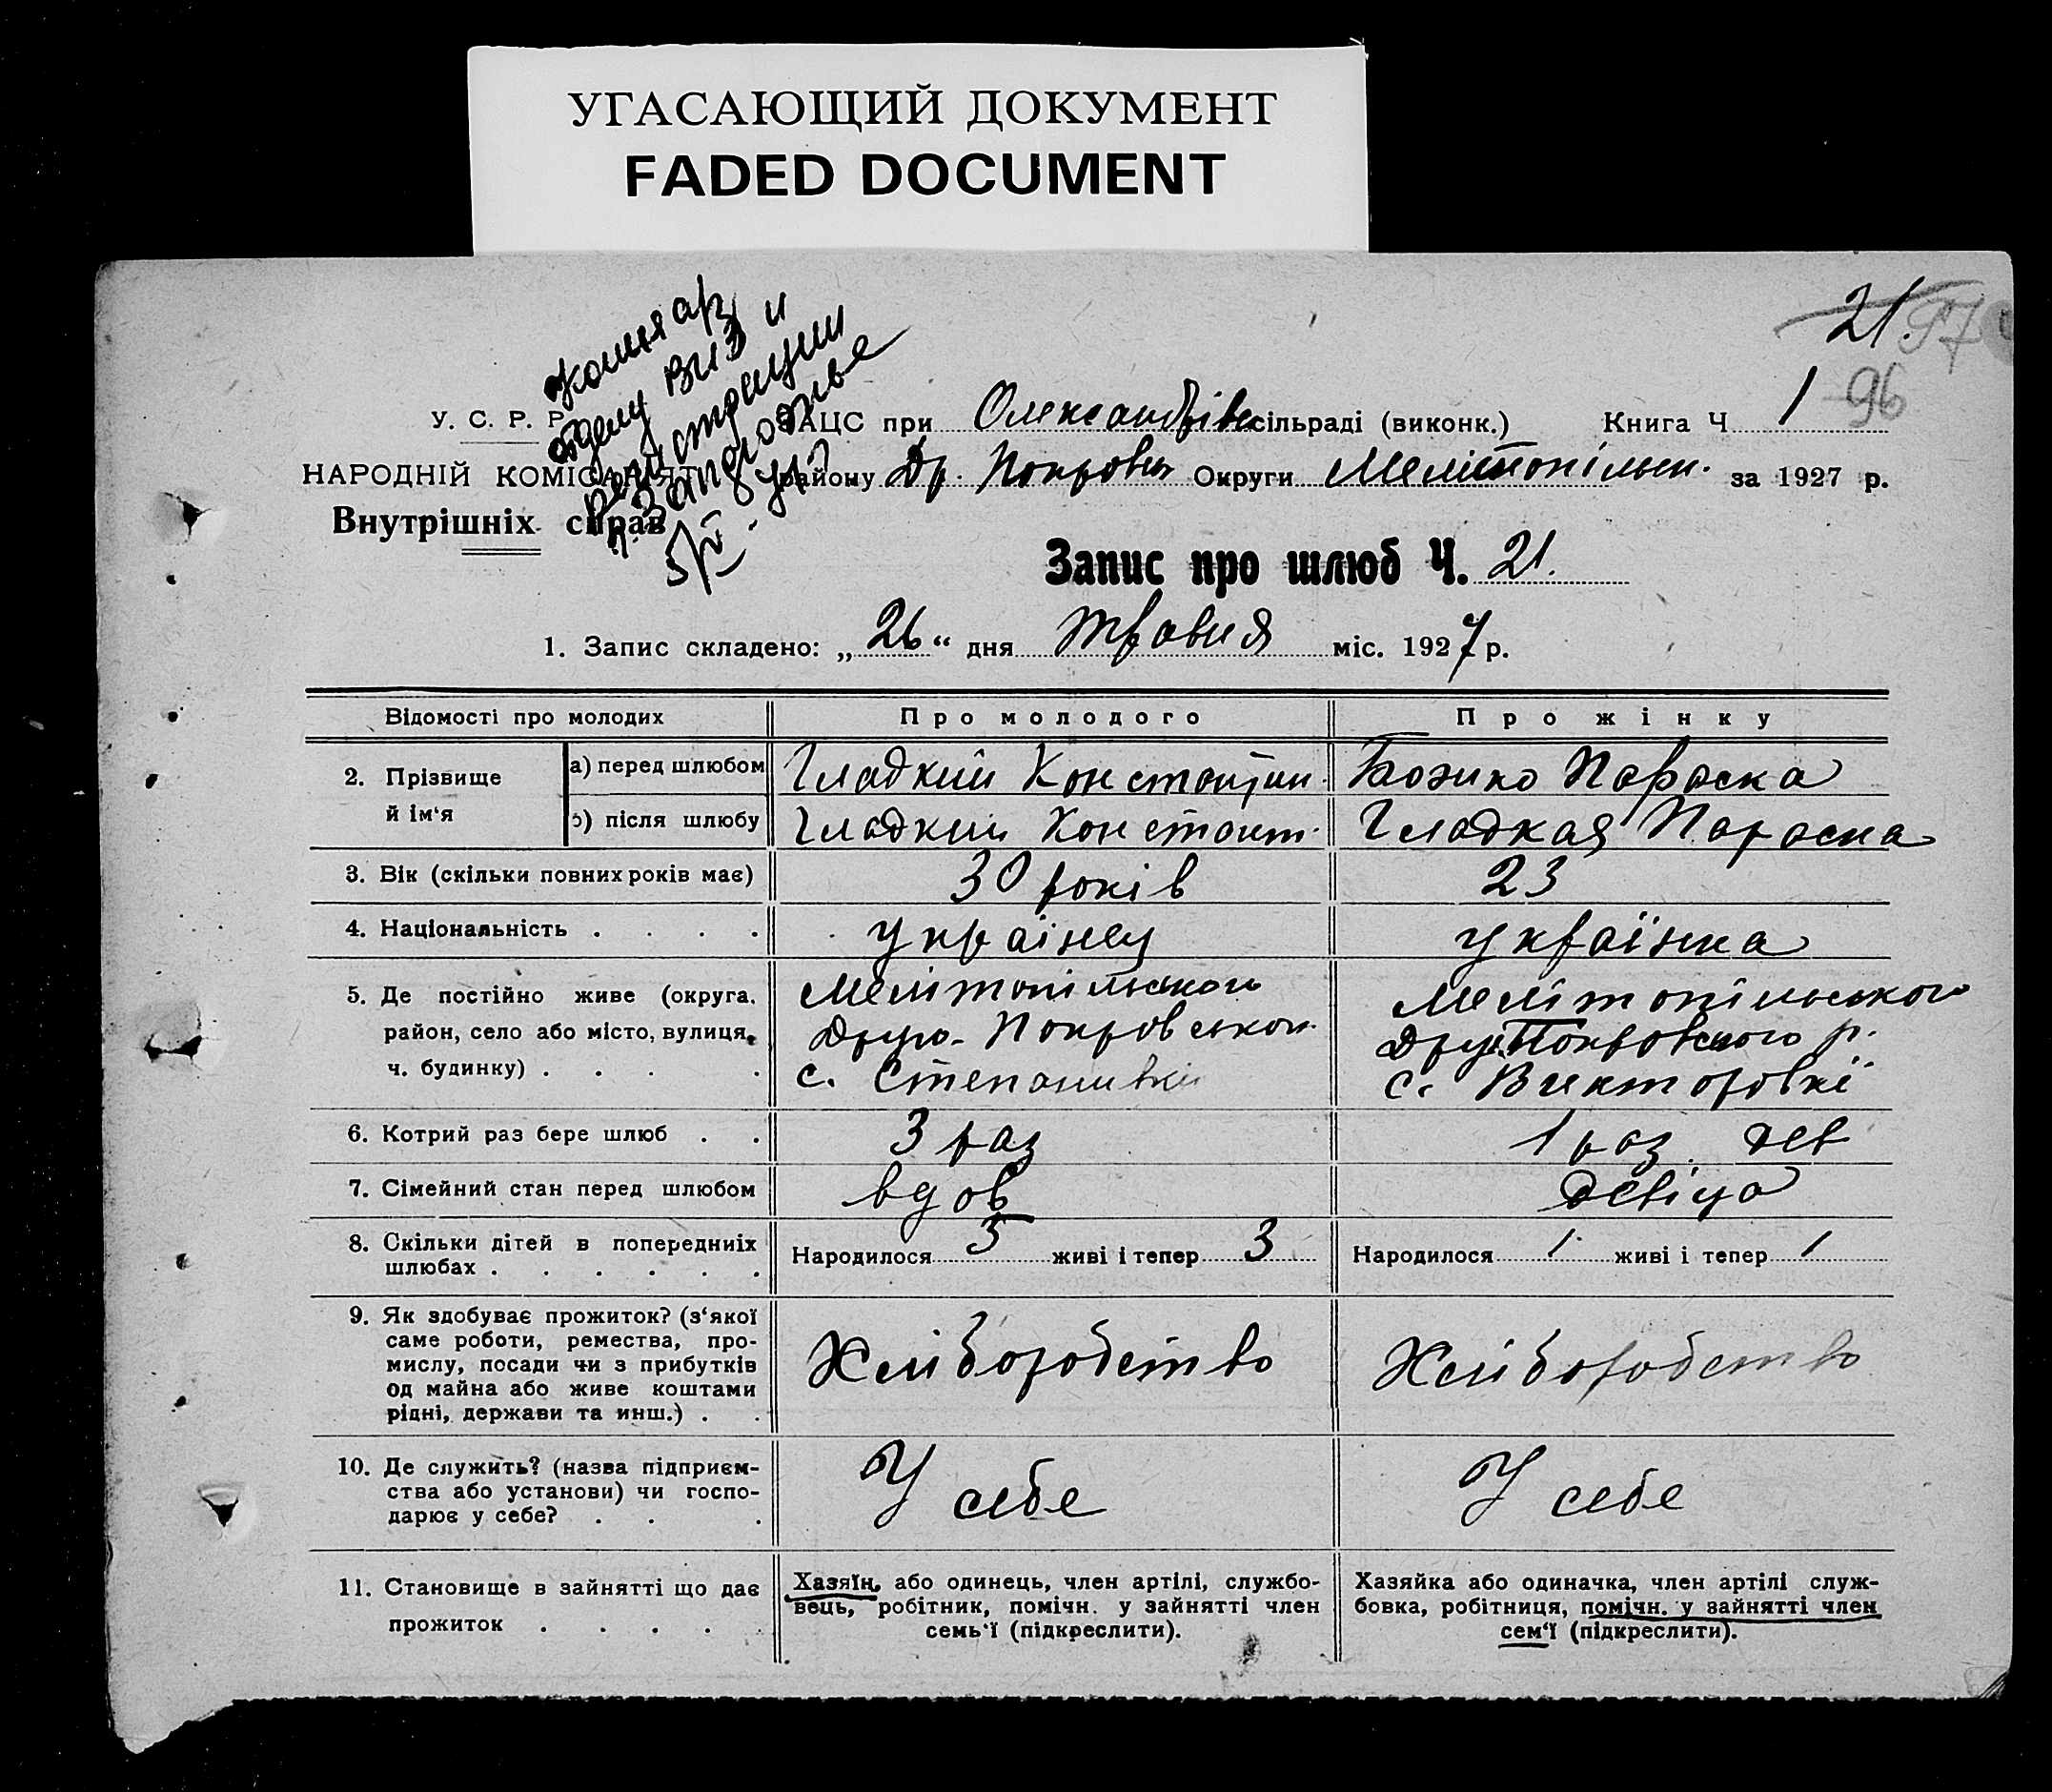 УГАСАЮЩИЙ ДОКУМЕНТ
FADED DOCUMENT
21.
97
96
Копия
отдел виз и
регистрации
г. Запорожье
У. С. Р. Р.
НАРОДНІЙ КОМІСАРІЯТ
Внутрішніх справ
ЗАЦС при Олександрівк сільраді (виконк.) Книга Ч 1
району Др. Покровськ Округи Мелітопільськ. за 1927 р.
Запис про шлюб Ч. 21.
1. Запис складено: „26“ дня травня міс. 1927 р.
Відомості про молодих Про молодого Про жінку
2. Прізвище й ім‘я
а) перед шлюбом Гладкий Константин. Божко Параска
б) після шлюбу Гладкий Констант. Гладкая Параска
3. Вік (скільки повних років має) 30 років 23
4. Національність . . . . українец українка
5. Де постійно живе (округа, Мелітопільського Мелітопільського
район, село або місто, вулиця, Друго-Покровськог. Друг.Покровського р.
ч. будинку) . . . . с. Степанивкі с. Викторовкі
6. Котрий раз бере шлюб . . 3 раз 1 раз. дев
7. Сімейний стан перед шлюбом вдов девіца
8. Скільки дітей в попередниіх
шлюбах . . . . . . Народилося 5 живі і тепер 3 Народилося 1 живі і тепер 1
9. Як здобуває прожиток? (з‘якої
саме роботи, ремества, про-
мислу, посади чи з прибутків
од майна або живе коштами
рідні, держави та инш.) . .
Хліборобство Хліборобство
10. Де служить? (назва підприєм-
ства або установи) чи госпо-
дарює у себе? . . .
У себе У себе
11. Становище в зайнятті що дає
прожиток . . . .
Хазяїн, або одинець, член артілі, службо-
вець, робітник, помічн. у зайнятті член
семь‘ї (підкреслити).
Хазяйка або одиначка, член артілі служ-
бовка, робітниця, помічн. у зайнятті член
сем‘ї (підкреслити).